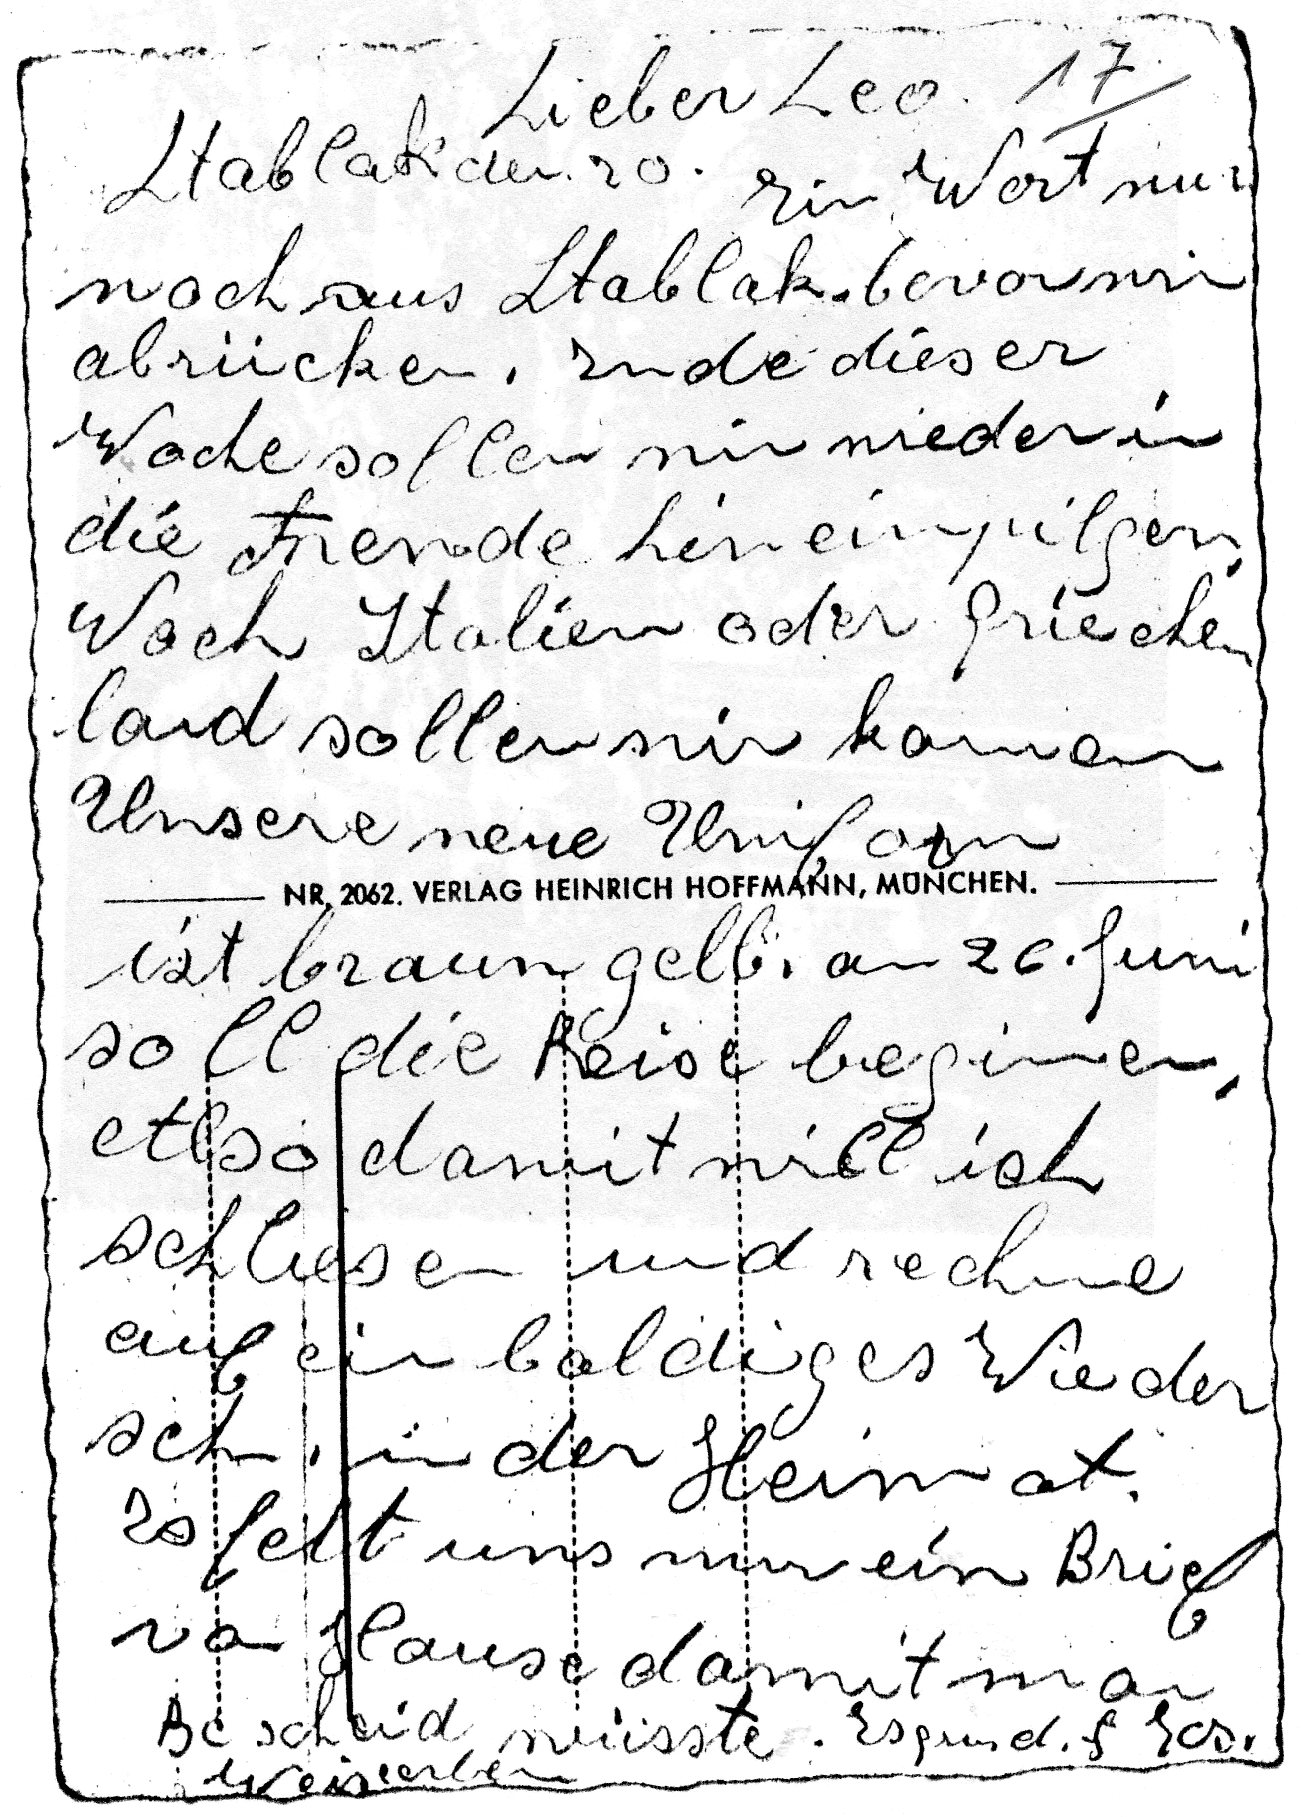 Lieber Leo. 17
Stablak den 20. Ein Wort nur
noch aus Stablak. bevor wir
abrücken. Ende dieser
Woche sollen wir wieder in
die Fremde hineinpilgern,
Nach Italien oder Griechen
land sollen wir komen
Unsere neue Uniform
NR. 2062. VERLAG HEINRICH HOFFMANN, MÜNCHEN.
ist braun gelb. am 26. Juni
soll die Reise beginen,
Also damit will ich
schliesen und rechne
auf ein baldiges Wieder
sehn. in der Heimat.
Es felt uns nur ein Brief
von Hause damit man
Bescheid wüsste.